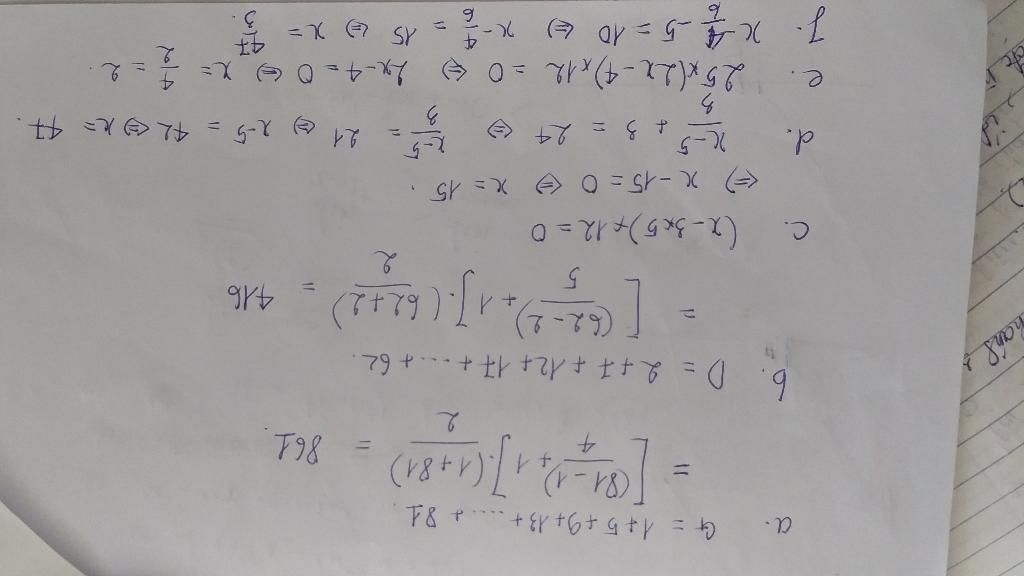 a. G = 1+5+9+13+.....+ 81
= [(81-1)/4 + 1].(1+81)/2 = 861.
b. D = 2+7+12+17+.....+ 62.
= [(62-2)/5 + 1].(62+2)/2 = 416
c. (x-3x5)x12=0
⇔ x-15=0 ⇔ x = 15.
d. x-5/3 + 3 = 24 ⇔ x-5/3 = 21 ⇔ x-5 = 42 ⇔ x = 47.
e. 25x(2x-4)x12 = 0 ⇔ 2x-4=0 ⇔ x = 4/2 = 2.
f. x-4/6-5=10 ⇔ x-4/6 = 15 ⇔ x = 47/3.